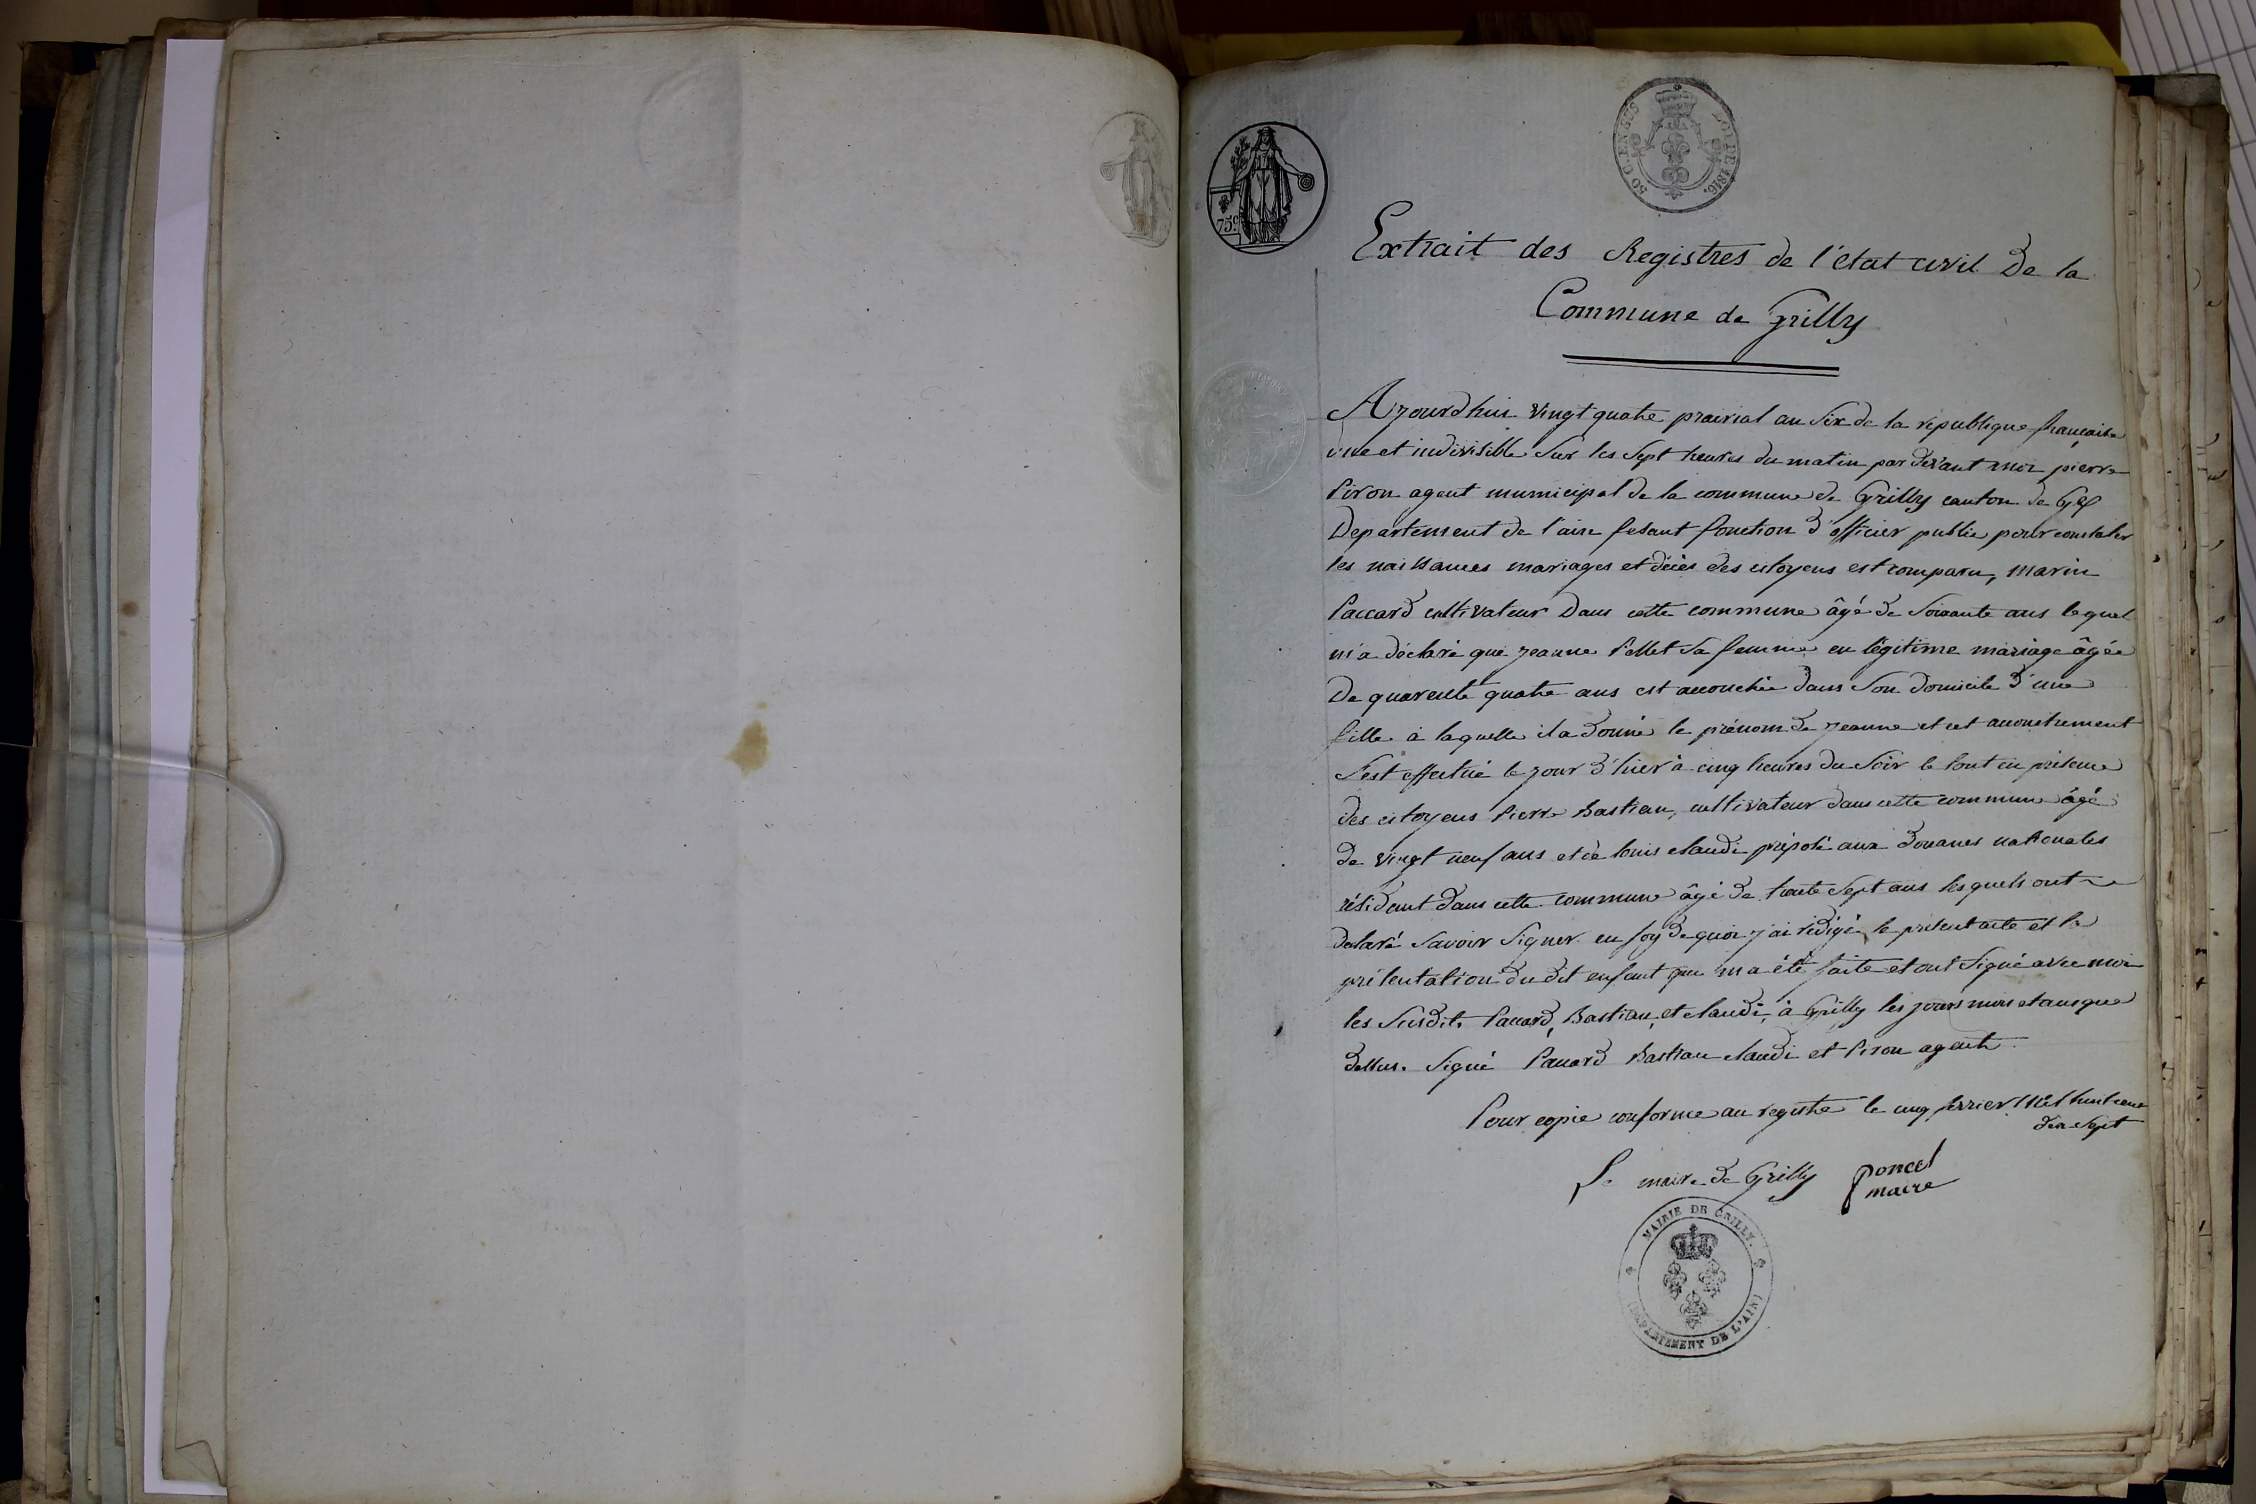 50 C. EN SUS
LOI DE 1816.
75c
Extrait des Registres de l'état civil De la
Commune de Grilly
Ajourdhui vingt quatre prairial an Six de la république française
une et indivisible Sur les Sept heures du matin par devant moi pierre
Piron agent municipal de la commune de Grilly canton de Gex
Departement de l'ain fesant fonction d'officier public pour constater
les naissances mariages et décès des citoyens est comparu, marin
Paccard cultivateur Dans cette commune âgé de Soixante ans lequel
m'a déclaré que jeanne Pellet Sa femme en légitime mariage âgée
De quarente quatre ans est accouchée dans Son domicile d'une
fille à laquelle il a donné le prénom de jeanne et cet accouchement
S'est effectué le jour d'hier à cinq heures du Soir le tout en présence
des citoyens Pierre Bastian, cultivateur dans cette commune âgé
de vingt neuf ans et de louis claudi préposé aux douanes nationales
résident dans cette commune âgé de trente Sept ans lesquels ont
declaré Savoir Signer en foy de quoi j'ai rédigé le présent acte et la
présentation du dit enfant que m'a été faite et ont Signé avec moi
les Susdits Paccard, Bastian, et claudi, à Grilly les jours mois et ans que
dessus. Signé Paccard Bastian claudi et Piron agent
Pour copie conforme au registre le cinq fevrier Mil huit cent
dix Sept
Le maire de Grilly
Poncet
maire
MAIRIE DE GRILLY.
(DÉPARTEMENT DE L'AIN)